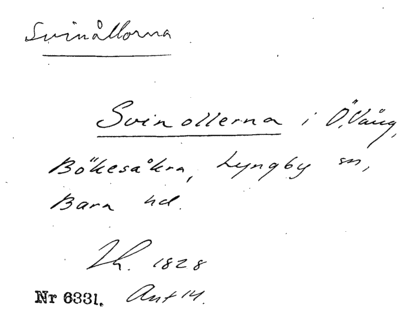 Svinållorna
Svinollerna i Ö. Vång,
Bökesåkra, Lyngby sn,
Bara hd.
Lh. 1828
Nr 6331. Akt 14.